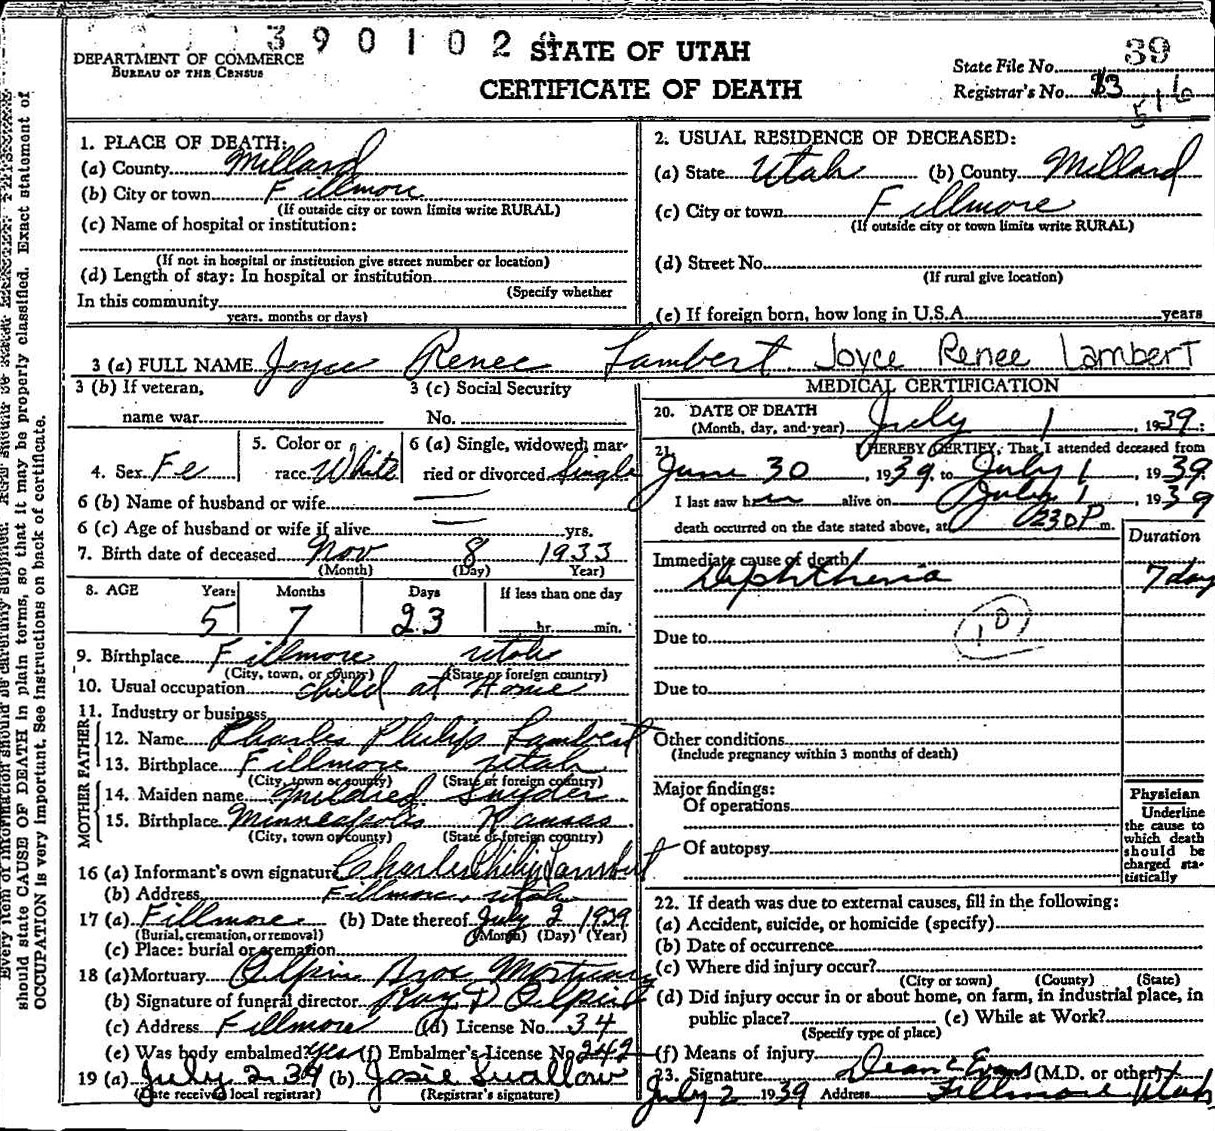 3901020
DEPARTMENT OF COMMERCE
BUREAU OF THE CENSUS
STATE OF UTAH
CERTIFICATE OF DEATH
State File No. 39
Registrar's No. 13
516
1. PLACE OF DEATH:
(a) County Millard
(b) City or town Fillmore
(If outside city or town limits write RURAL)
(c) Name of hospital or institution:
(If not in hospital or institution give street number or location)
(d) Length of stay: In hospital or institution
(Specify whether
In this community
years, months or days)
2. USUAL RESIDENCE OF DECEASED:
(a) State Utah (b) County Millard
(c) City or town Fillmore
(If outside city or town limits write RURAL)
(d) Street No.
(If rural give location)
(e) If foreign born, how long in U.S.A. years
3 (a) FULL NAME Joyce Renee Lambert Joyce Renee Lambert
3 (b) If veteran, 3 (c) Social Security
name war No.
4. Sex Fe 5. Color or race White 6 (a) Single, widowed, married or divorced Single
6 (b) Name of husband or wife
6 (c) Age of husband or wife if alive yrs.
7. Birth date of deceased Nov 8 1933
(Month) (Day) Year)
8. AGE Years Months Days If less than one day
5 7 23 hr. min.
9. Birthplace Fillmore Utah
(City, town, or county) (State or foreign country)
10. Usual occupation child at Home
11. Industry or business
FATHER
12. Name Charles Philip Lambert
13. Birthplace Fillmore Utah
(City, town or county) (State or foreign country)
MOTHER
14. Maiden name Mildred Snyder
15. Birthplace Minneapolis Kansas
(City, town or county) (State or foreign country)
16 (a) Informant's own signature Charles Philip Lambert
(b) Address Fillmore, Utah
17 (a) Fillmore (b) Date thereof July 2 1939
(Burial, cremation, or removal) (Month) (Day) (Year)
(c) Place: burial or cremation
18 (a) Mortuary Olpin Bros Mortuary
(b) Signature of funeral director Roy D Olpin
(c) Address Fillmore (d) License No. 34
(e) Was body embalmed? Yes (f) Embalmer's License No. 242
19 (a) July 2 39 (b) Josie Swallow
(Date received local registrar) (Registrar's signature)
MEDICAL CERTIFICATION
20. DATE OF DEATH
(Month, day, and year) July 1, 1939.
21. I HEREBY CERTIFY, That I attended deceased from
June 30, 1939, to July 1, 1939.
I last saw her alive on July 1, 1939
death occurred on the date stated above, at 0230 P m.
Duration
Immediate cause of death
Diphtheria 7 day
10
Due to
Due to
Other conditions
(Include pregnancy within 3 months of death)
Major findings:
Of operations
Of autopsy
Physician
Underline the cause to which death should be charged statistically
22. If death was due to external causes, fill in the following:
(a) Accident, suicide, or homicide (specify)
(b) Date of occurrence
(c) Where did injury occur?
(City or town) (County) (State)
(d) Did injury occur in or about home, on farm, in industrial place, in
public place? (e) While at Work?
(Specify type of place)
(f) Means of injury
23. Signature Dean C Evans (M.D. or other)
July 2 1939 Address Fillmore Utah
should state CAUSE OF DEATH in plain terms, so that it may be properly classified. Exact statement of
OCCUPATION is very important. See instructions on back of certificate.